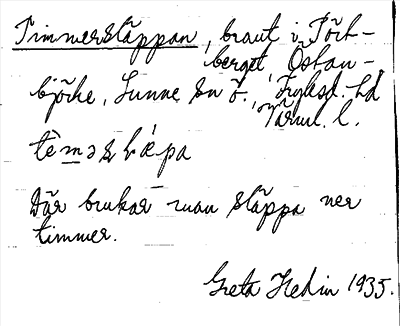 Timmersläppan, brant i Törb-
berget Östan-
björke, Sunne sn ö. Fryksd. hd
Värml. l.
tèməsläpa
Där brukar man släppa ner
timmer.
Greta Hedin 1935.